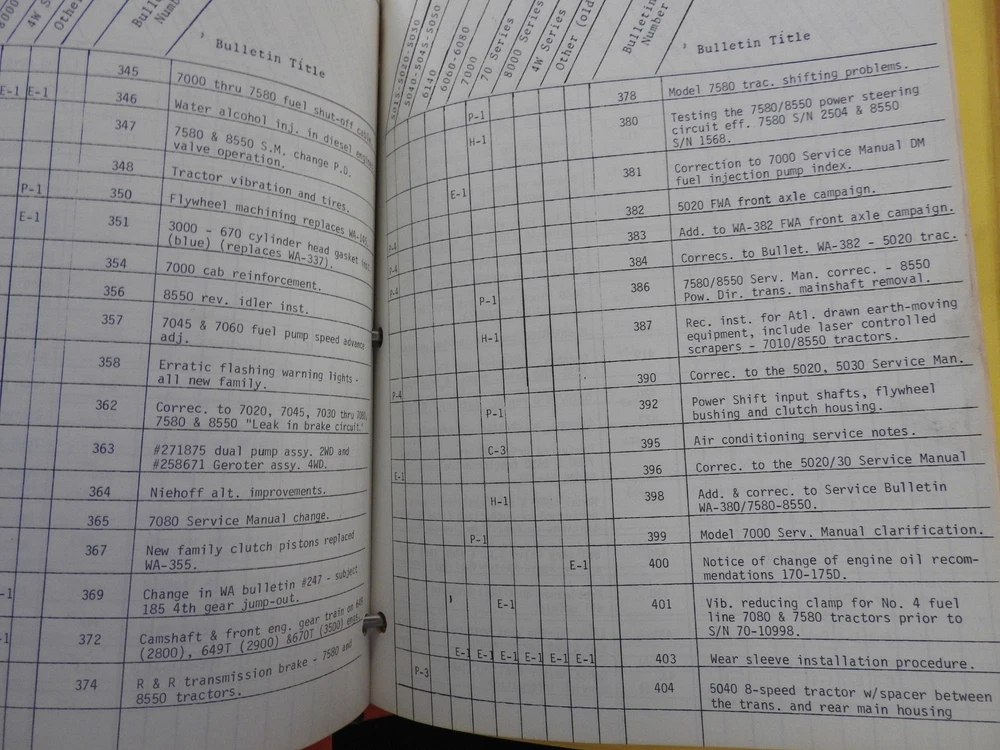 8000
4W S
Othe
Bulle
Numb
' Bulletin Title
345
7000 thru 7580 fuel shut-off
E-1 E-1 346
Water alcohol inj. in diesel
347
7580 & 8550 S.M. change P.D.
valve operation.
348
Tractor vibration and tires.
P-1 350
Flywheel machining replaces
E-1 351
3000 - 670 cylinder head gasket
(blue) (replaces WA-337).
354
7000 cab reinforcement.
356
8550 rev. idler inst.
357
7045 & 7060 fuel pump speed advance
adj.
358
Erratic flashing warning lights -
all new family.
362
Correc. to 7020, 7045, 7030 thru
7580 & 8550 "Leak in brake circuit."
363
#271875 dual pump assy. 2WD and
#258671 Geroter assy. 4WD.
364
Niehoff alt. improvements.
365
7080 Service Manual change.
367
New family clutch pistons replaced
WA-355.
-1 369
Change in WA bulletin #247 - subject
185 4th gear jump-out.
-1 372
Camshaft & front eng. gear train on
(2800), 649T (2900) &670T (3500)
374
R & R transmission brake - 7580 and
8550 tractors.
5015-5020-5030
5040-5045-5050
6140
6060-6080
7000
70 Series
8000 Series
4W Series
Other (old
Bulletin
Number
' Bulletin Title
P-1 378 Model 7580 trac. shifting problems.
H-1 380 Testing the 7580/8550 power steering
circuit eff. 7580 S/N 2504 & 8550
S/N 1568.
E-1 381 Correction to 7000 Service Manual DM
fuel injection pump index.
P-4 382 5020 FWA front axle campaign.
P-4 383 Add. to WA-382 FWA front axle campaign.
P-4 384 Correcs. to Bullet. WA-382 - 5020 trac.
P-1 386 7580/8550 Serv. Man. correc. - 8550
Pow. Dir. trans. mainshaft removal.
H-1 387 Rec. inst. for Atl. drawn earth-moving
equipment, include laser controlled
scrapers - 7010/8550 tractors.
P-4 390 Correc. to the 5020, 5030 Service Man.
P-1 392 Power Shift input shafts, flywheel
bushing and clutch housing.
C-3 395 Air conditioning service notes.
E-1 396 Correc. to the 5020/30 Service Manual
H-1 398 Add. & correc. to Service Bulletin
WA-380/7580-8550.
P-1 399 Model 7000 Serv. Manual clarification.
E-1 400 Notice of change of engine oil recom-
mendations 170-175D.
E-1 401 Vib. reducing clamp for No. 4 fuel
line 7080 & 7580 tractors prior to
S/N 70-10998.
E-1 E-1 E-1 E-1 E-1 E-1 403 Wear sleeve installation procedure.
P-3 404 5040 8-speed tractor w/spacer between
the trans. and rear main housing